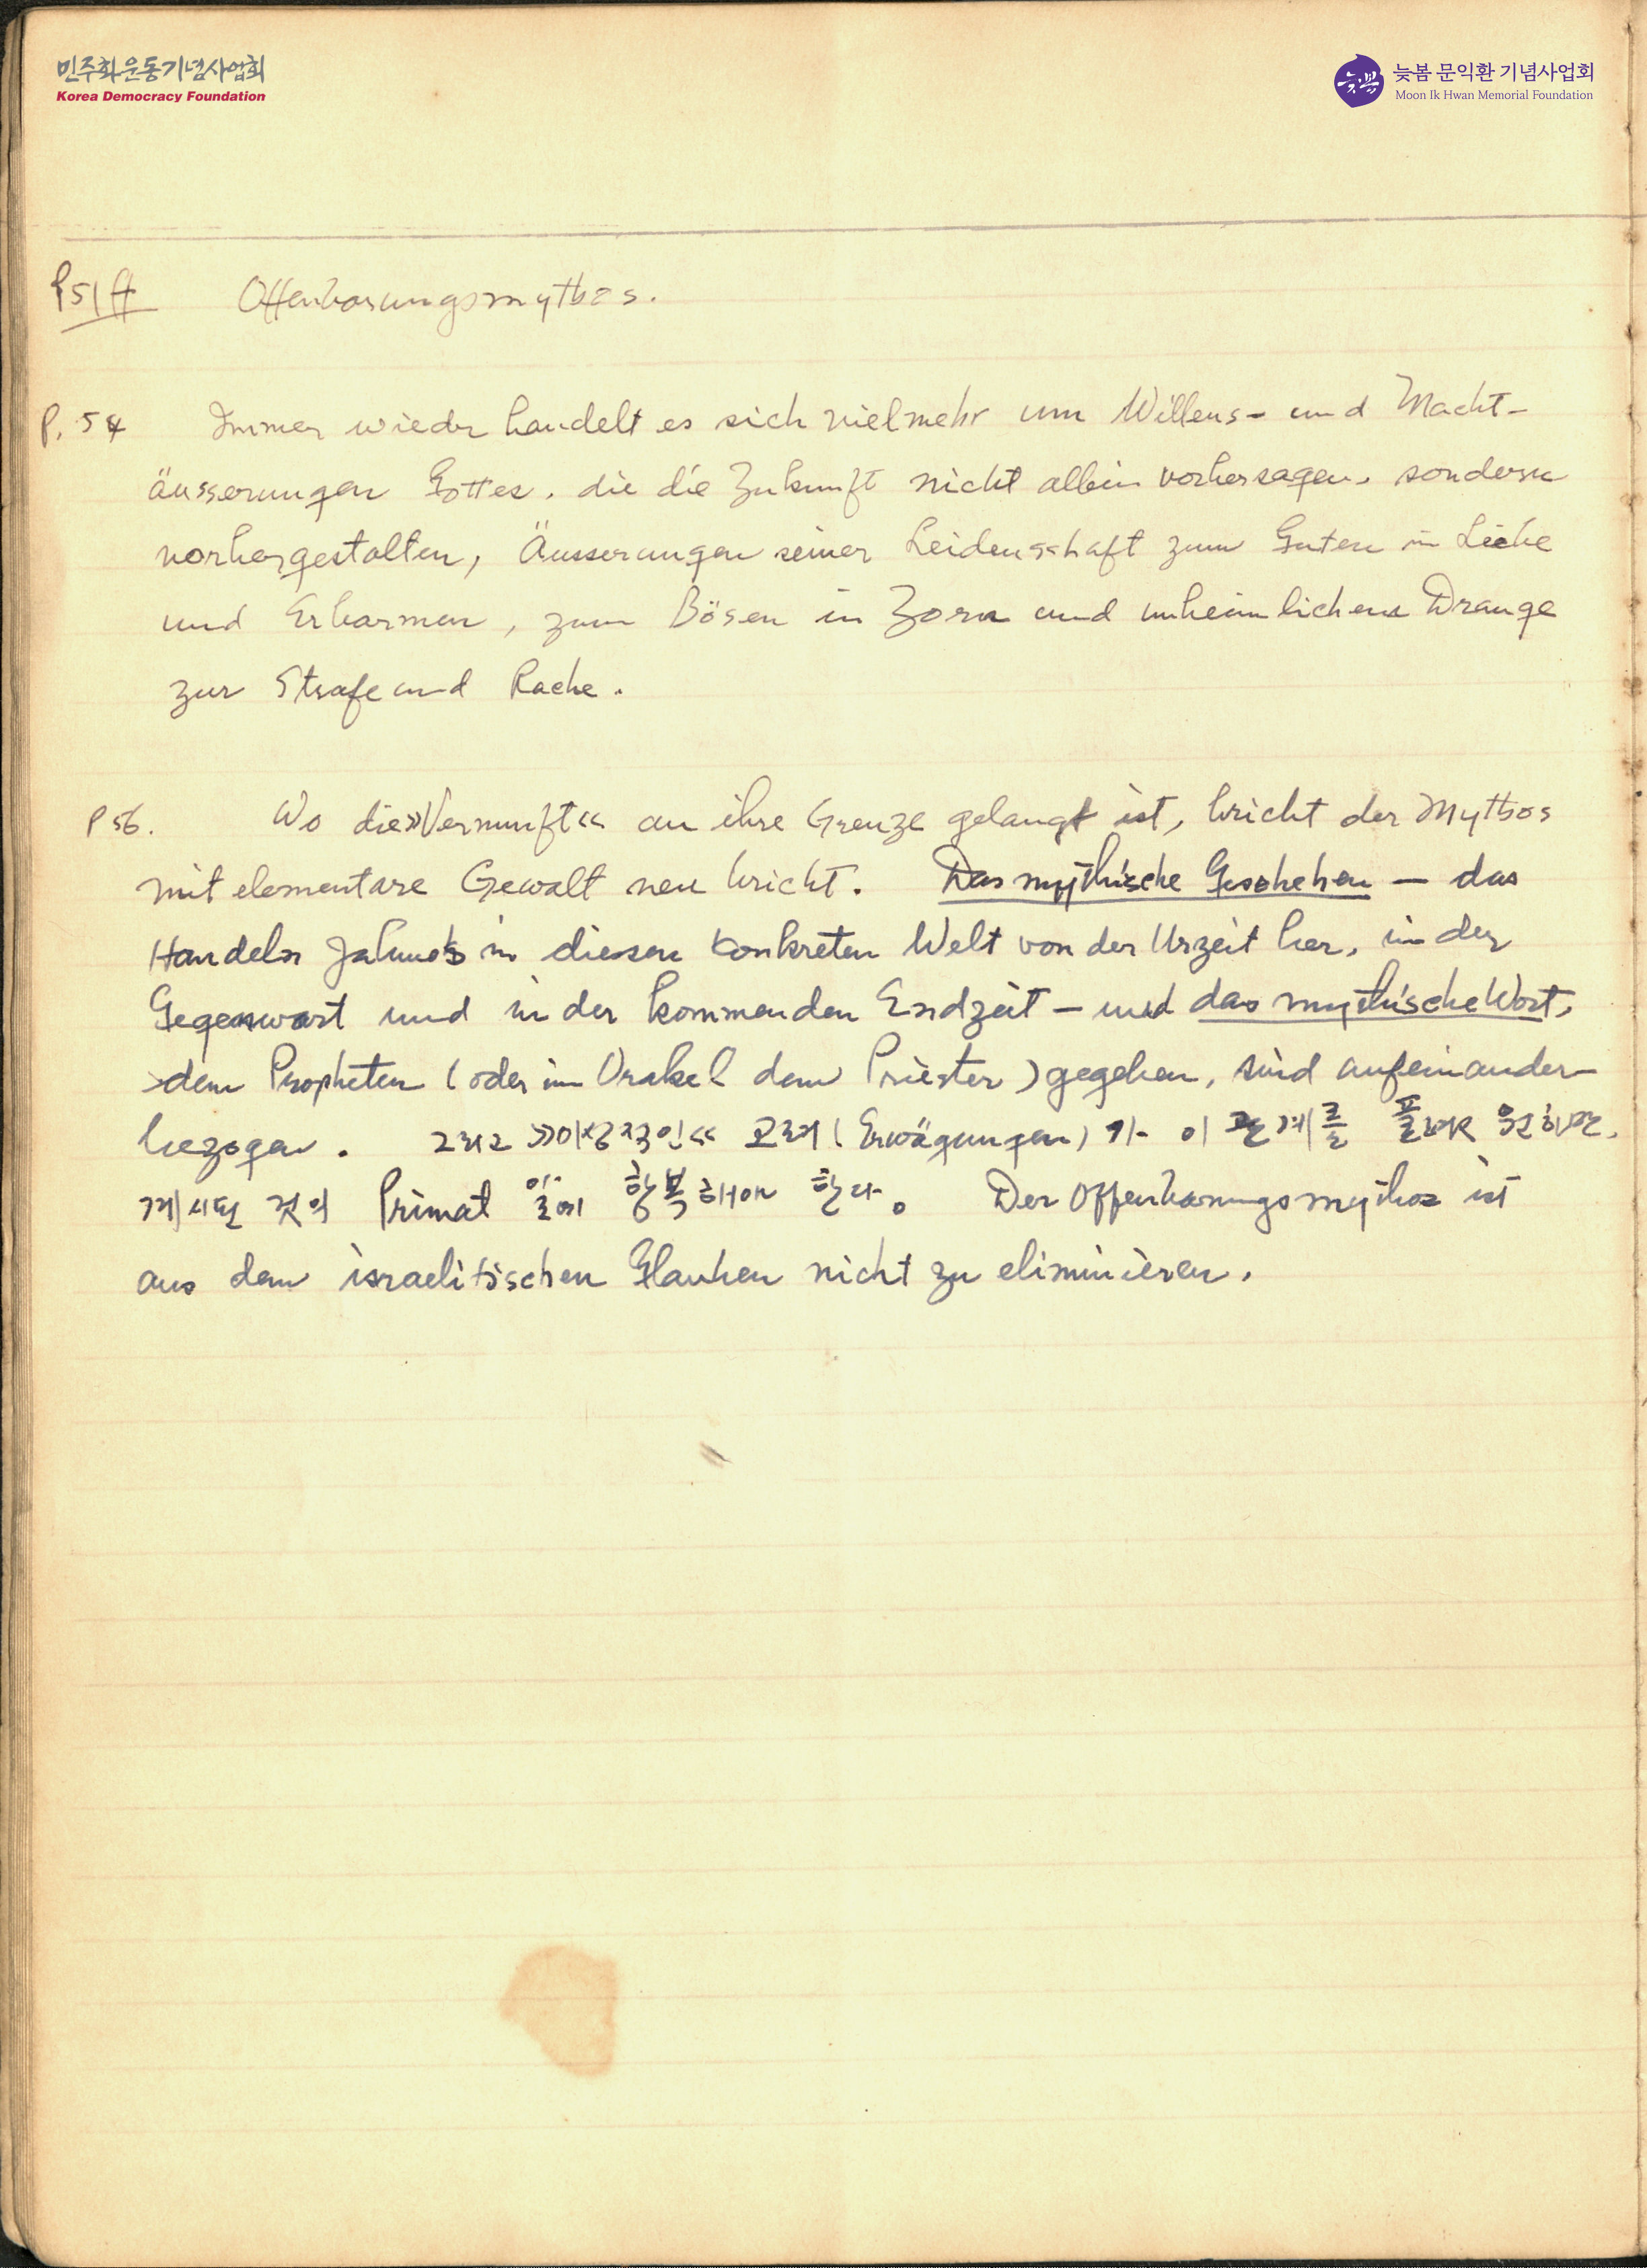 민주화운동기념사업회
Korea Democracy Foundation
늦봄
늦봄 문익환 기념사업회
Moon Ik Hwan Memorial Foundation
P51ff Offenbarungsmythos.
P. 54 Immer wieder handelt es sich vielmehr um Willens- und Macht-
äusserungen Gottes, die die Zukunft nicht allein vorhersagen, sondern
vorhergestalten, Äusserungen seiner Leidenschaft zum Guten in Liebe
und Erbarmen, zum Bösen in Zorn und unheimlichem Drange
zur Strafe und Rache.
P 56. Wo die »Vernunft« an ihre Grenze gelangt ist, bricht der Mythos
mit elementare Gewalt neu bricht. Das mythische Geschehen – das
Handeln Jahwes in diesem konkreten Welt von der Urzeit her, in der
Gegenwart und in der kommenden Endzeit – und das mythische Wort,
dem Propheten (oder im Orakel dem Priester) gegeben, sind aufeinander-
bezogen. 그리고 »이성적인« 고려 (Erwägungen) 가 이 관계를 풀려 원하면,
계시된 것의 Primat 앞에 항복해야 한다。 Der Offenbarungsmythos ist
aus dem israelitischen Glauben nicht zu eliminieren.